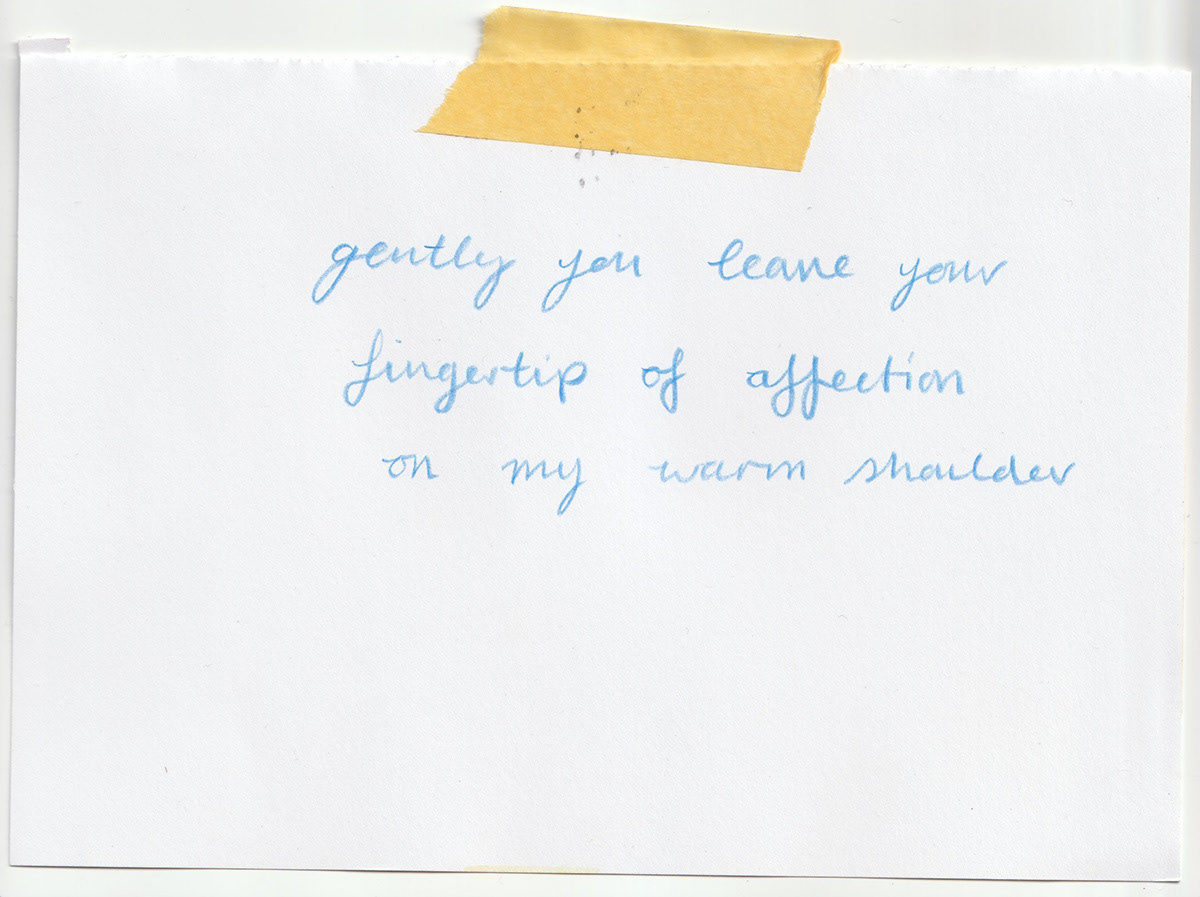 gently you leave your
fingertip of affection
on my warm shoulder